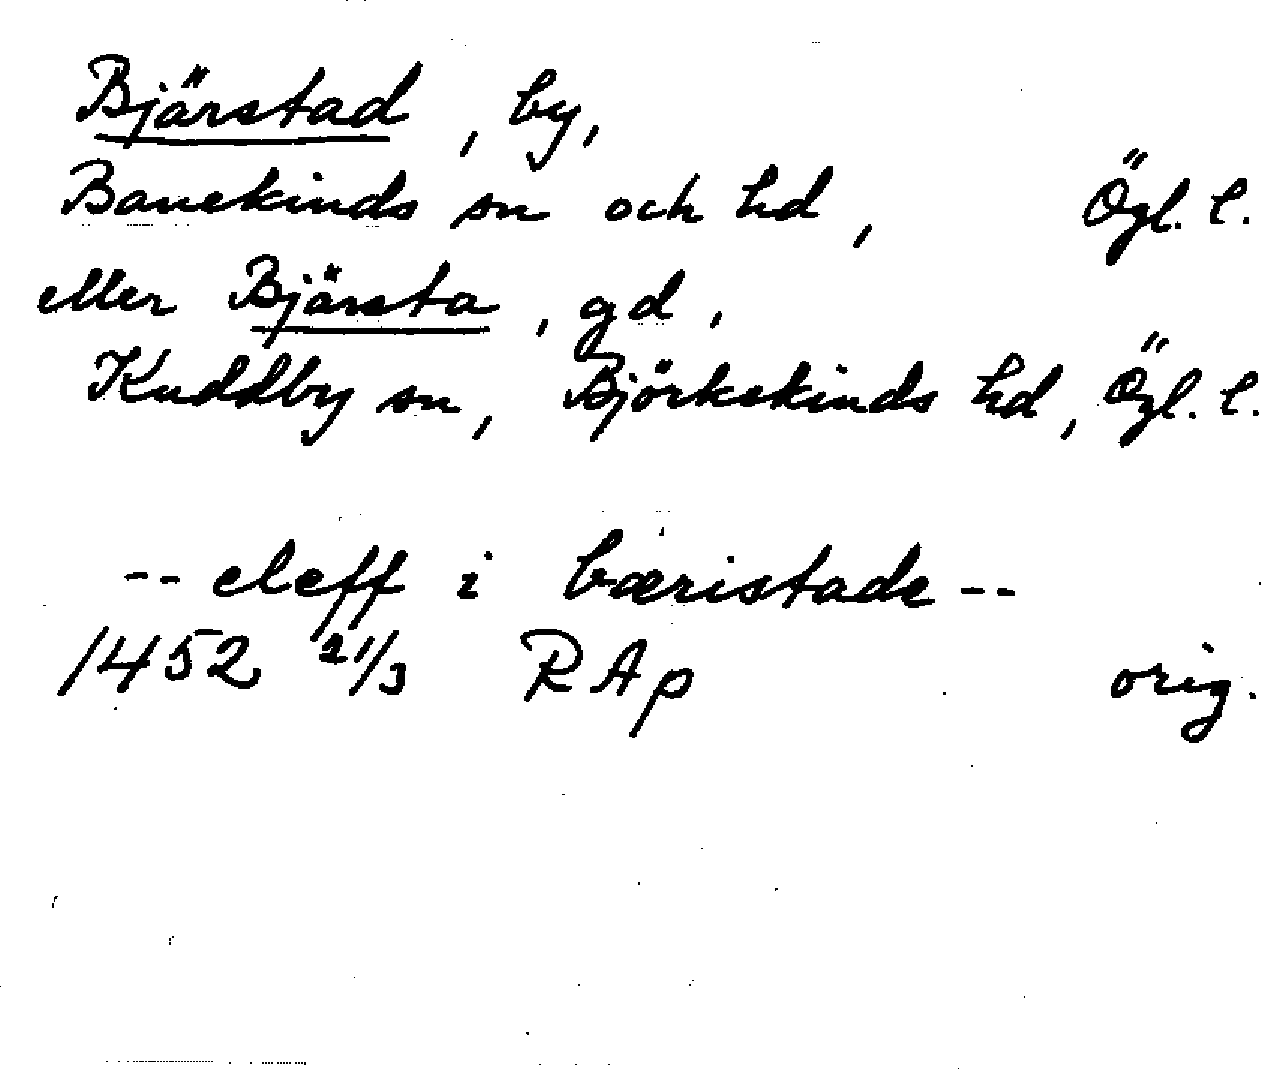 Bjärstad, by,
Banekinds sn och hd, Ögl. l.
eller Bjärsta, gd,
Kuddby sn, Björkekinds hd, Ögl. l.
-- eleff i bæristade --
1452 21/3 RAp orig.